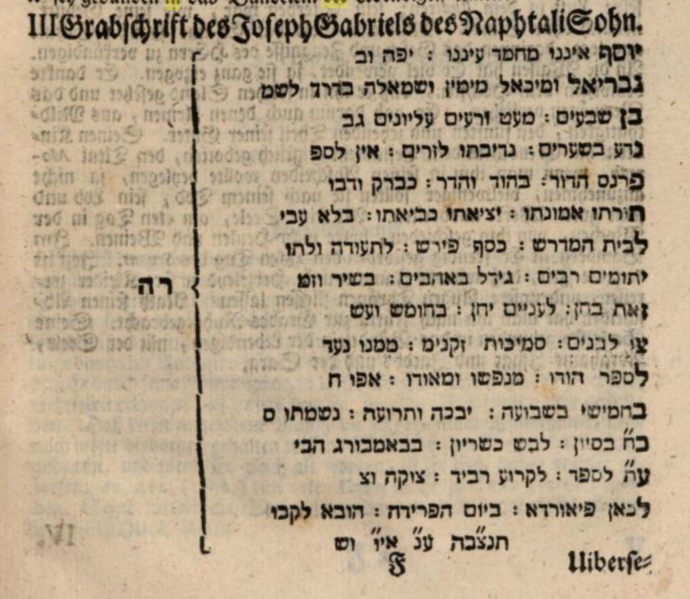 III Grabschrift des Joseph Gabriels des Naphtali Sohn.
יוסף איננו מחמד עיננו : יפה וב
גבריאל ומיכאל מימין ושמאלה בדרך לשמ
בן שבעים : מעט ורעים עליונים גב
נרע בשערים : נדיבתו לזרים : אין לספ
פרנס הדור : בהוד והדר : כברק ודבו
תורתו אמונתו : יציאתו כביאתו : בלא עבי
לבית המדרש : כסף פירש : לתעודה ולתו
יתומים רבים : גידל באהבים : בשיר וזמ
זאת בחן : לעניים יחן : בחומש ועש
צו לבנים : סמיכות זקנים : ממנו נער
לספר הודו : מנפשו ומאודו : אפו ח
בחמישי בשבועה : יבכה ותרועה : נשמתו ס
כח בסיון : לבש כשריון : בבאמבורג הבי
עת לספד : לקרוע רביד : צוקה וצ
לכאן פיאורדא : ביום הפרידה : הובא לקבו
תנצבה ענ איו וש
רה
F
Uiberse=